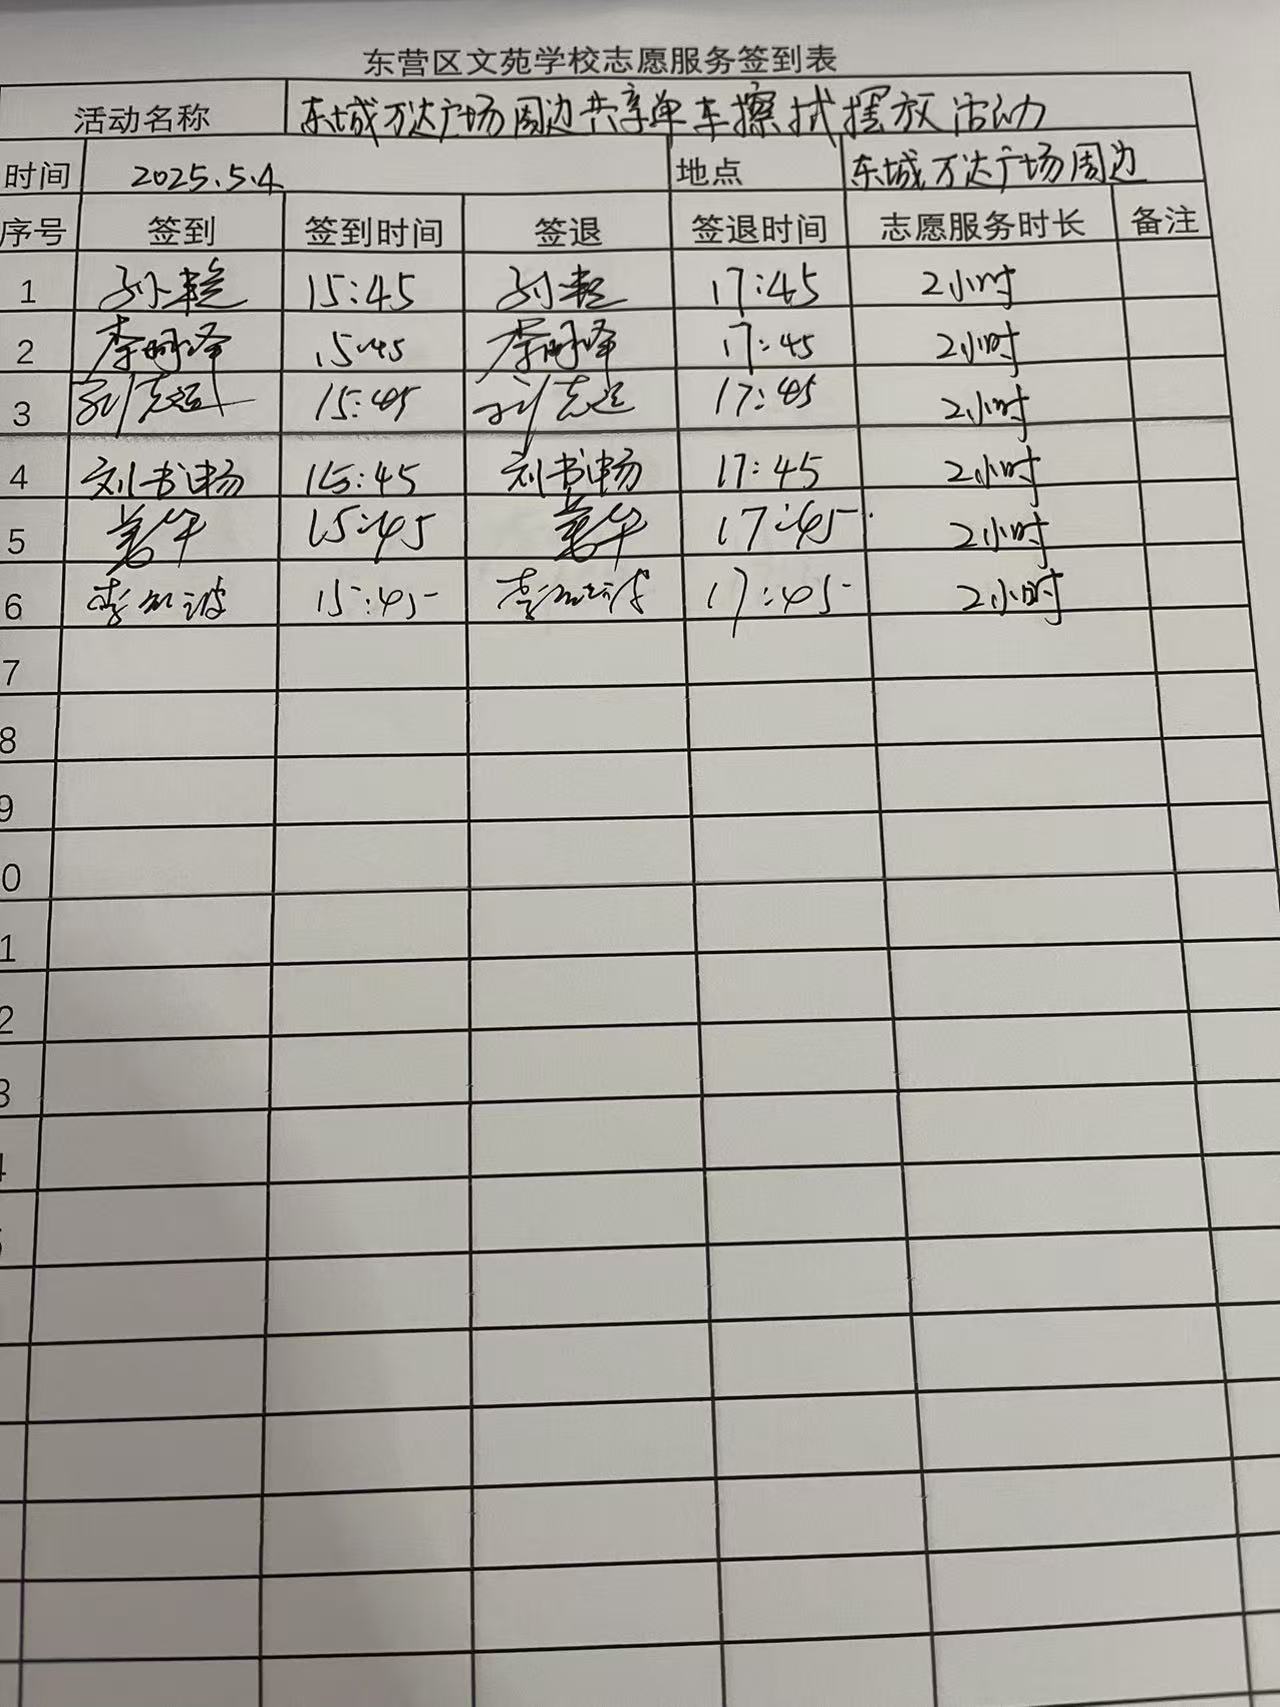 东营区文苑学校志愿服务签到表
活动名称 东城万达广场周边共享单车擦拭摆放活动
时间 2025.5.4 地点 东城万达广场周边
序号 签到 签到时间 签退 签退时间 志愿服务时长 备注
1 15:45 17:45 2小时
2 15:45 17:45 2小时
3 15:45 17:45 2小时
4 刘书畅 15:45 刘书畅 17:45 2小时
5 15:45 17:45 2小时
6 15:45 17:45 2小时
7
8
9
0
1
2
3
4
5